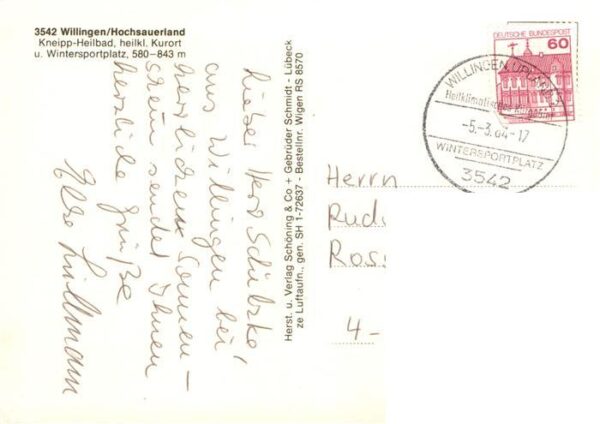 3542 Willingen/Hochsauerland
Kneipp-Heilbad, heilkl. Kurort
u. Wintersportplatz, 580–843 m
Lieber Herr Schulzke,
aus Willingen bei
herrlichem Sonnen–
schein sendet Ihnen
herzliche Grüße
Else Lüllmann
Herst. u. Verlag Schöning & Co + Gebrüder Schmidt - Lübeck
ze Luftaufn., gen. SH 1-72637 - Bestellnr. Wigen RS 8570
DEUTSCHE BUNDESPOST
60
WILLINGEN, UPLAND
Heilklimatischer Kurort
-5.-3.84-17
WINTERSPORTPLATZ
3542
Herrn
Rud
Ros
4-